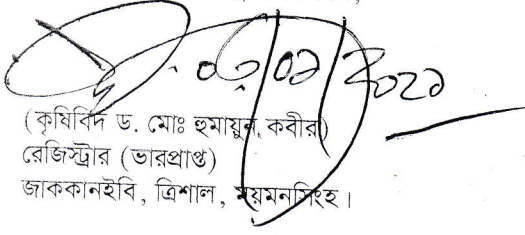 (কৃষিবিদ ড. মোঃ হুমায়ুন কবীর)
রেজিস্ট্রার (ভারপ্রাপ্ত)
জাককানইবি, ত্রিশাল, ময়মনসিংহ।